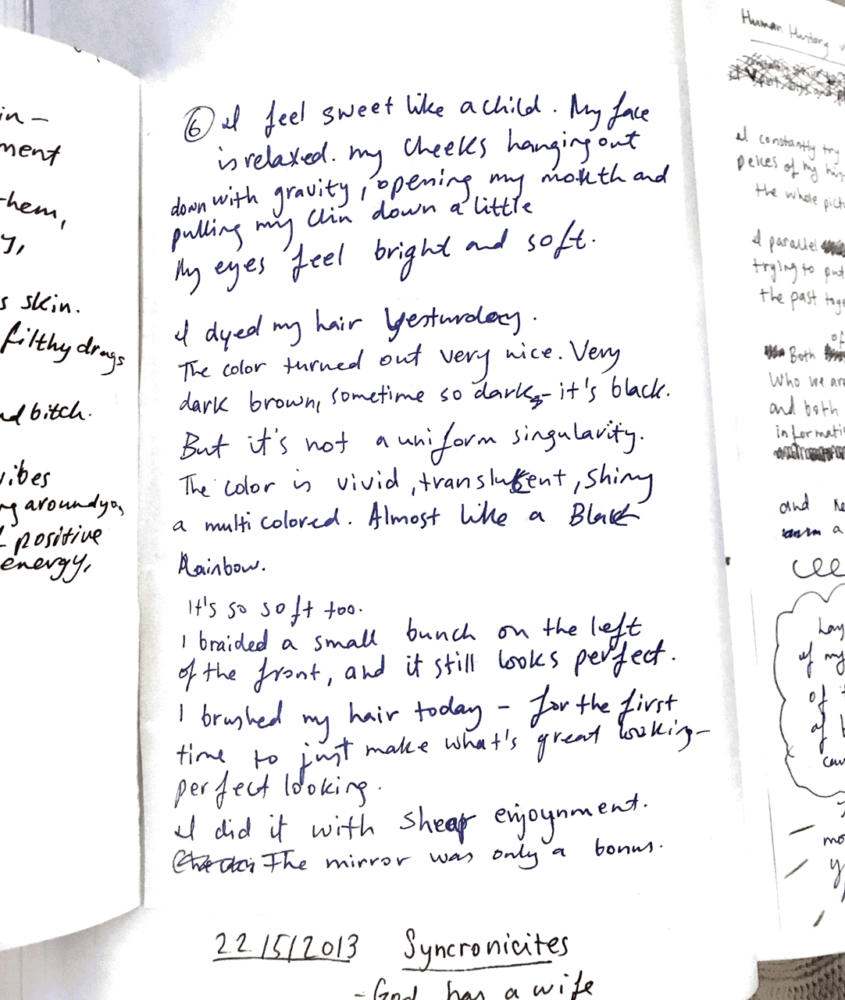 in –
ment
them,
y,
s skin.
filthy drugs
d bitch.
vibes
g around yo,
positive
energy,
⑥ I feel sweet like a child. My face
is relaxed. my cheeks hanging out
down with gravity, opening my mouth and
pulling my chin down a little
My eyes feel bright and soft.
I dyed my hair yesturday.
The color turned out very nice. Very
dark brown, sometime so dark - it's black.
But it's not a uniform singularity.
The color is vivid, translucent, shiny
a multi colored. Almost like a Black
Rainbow.
It's so soft too.
I braided a small bunch on the left
of the front, and it still looks perfect.
I brushed my hair today - for the first
time to just make what's great looking -
perfect looking.
I did it with shear enjoynment.
The mirror was only a bonus.
22/5/2013 Syncronicites
- God has a wife
Human History
I constantly try
peices of my
the whole pict
I parallel
trying to put
the past toge
of
Both
Who we are
and both
informati
and
a
of my
of
of